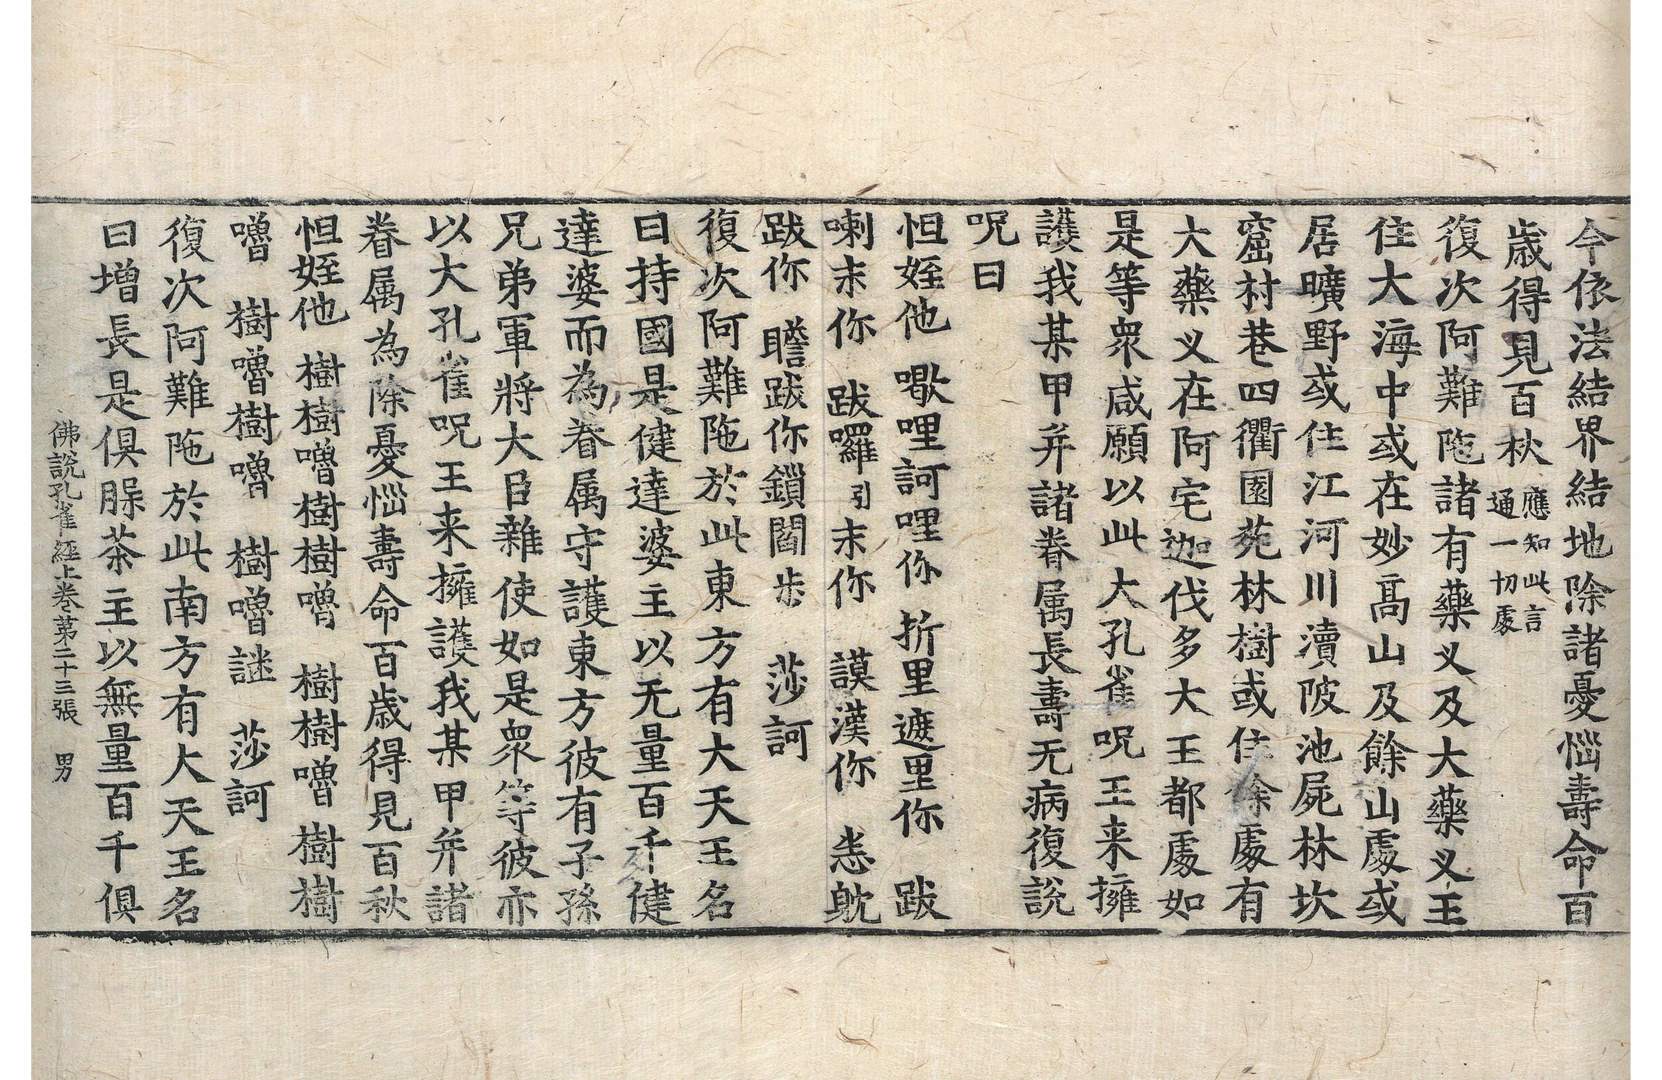 今依法結界結地除諸憂惱壽命百
歲得見百秋 應知此言通一切處
復次阿難陁諸有藥义及大藥义王
住大海中或在妙高山及餘山處或
居曠野或住江河川瀆陂池屍林坎
窟村巷四衢園苑林樹或住餘處有
大藥义在阿宅迦伐多大王都處如
是等衆咸願以此大孔雀呪王来擁
護我某甲并諸眷属長壽无病復說
呪曰
怛姪他 㗿哩訶哩你 折里遮里你 跋
喇末你 跋囉引末你 謨漢你 悉躭
跋你 瞻跋你鎖閻步 莎訶
復次阿難陁於此東方有大天王名
曰持國是健達婆主以无量百千健
達婆而為眷属守護東方彼有子孫
兄弟軍將大臣雜使如是衆等彼亦
以大孔雀呪王来擁護我某甲并諸
眷属為除憂惱壽命百歲得見百秋
怛姪他 樹樹嚕樹樹嚕 樹樹嚕樹樹
嚕 樹嚕樹嚕 樹嚕謎 莎訶
復次阿難陁於此南方有大天王名
曰增長是俱腪茶主以無量百千俱
佛說孔雀經上卷第二十三張 男